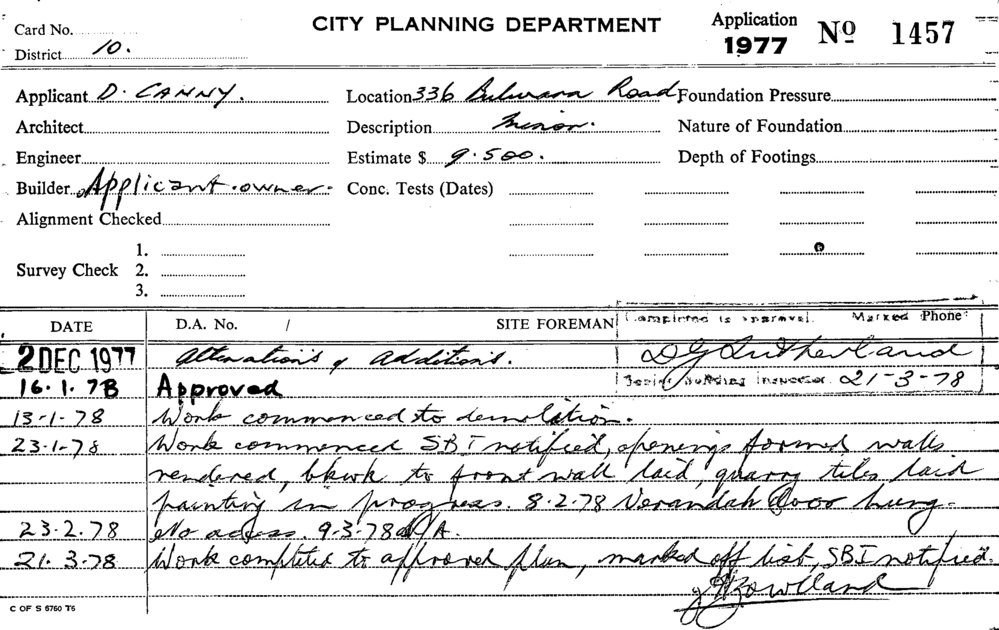 Card No.
CITY PLANNING DEPARTMENT
Application 1977 Nº 1457
District 10.
Applicant D. CANNY. Location 336 Bulwara Road Foundation Pressure
Architect Description Minor. Nature of Foundation
Engineer Estimate $ 9.500. Depth of Footings
Builder Applicant-owner. Conc. Tests (Dates)
Alignment Checked
1.
Survey Check 2.
3.
DATE D.A. No. / SITE FOREMAN Phone
Completed to approval. Marked
2 DEC 1977 Alterations & Additions. D G Sutherland
16.1.78 Approved Senior Building Inspector 21-3-78
13-1-78 Work commenced to demolition.
23-1-78 Work commenced SBI notified, openings formed walls
rendered, bkwk to front wall laid, quarry tiles laid
painting in progress. 8.2.78 Verandah door hung-
23-2.78 No access. 9-3-78 A.
21.3.78 Work completed to approved plan, marked off list, SBI notified.
Rowlland
C OF S 6760 T6